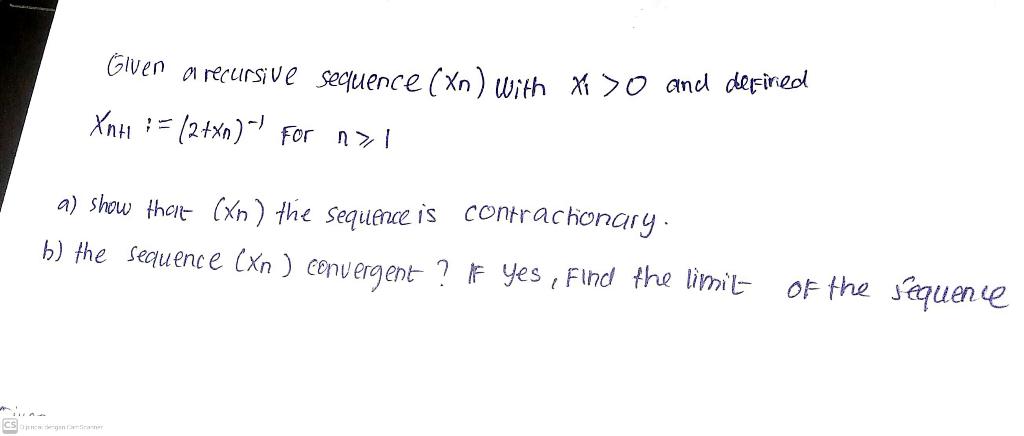 Given a recursive sequence (Xn) with X1 > 0 and defined
Xn+1 := (2+Xn)^-1 For n ⩾ 1
a) show that (Xn) the sequence is contractionary.
b) the sequence (Xn) convergent ? IF yes, Find the limit of the sequence
CS Dipindai dengan CamScanner